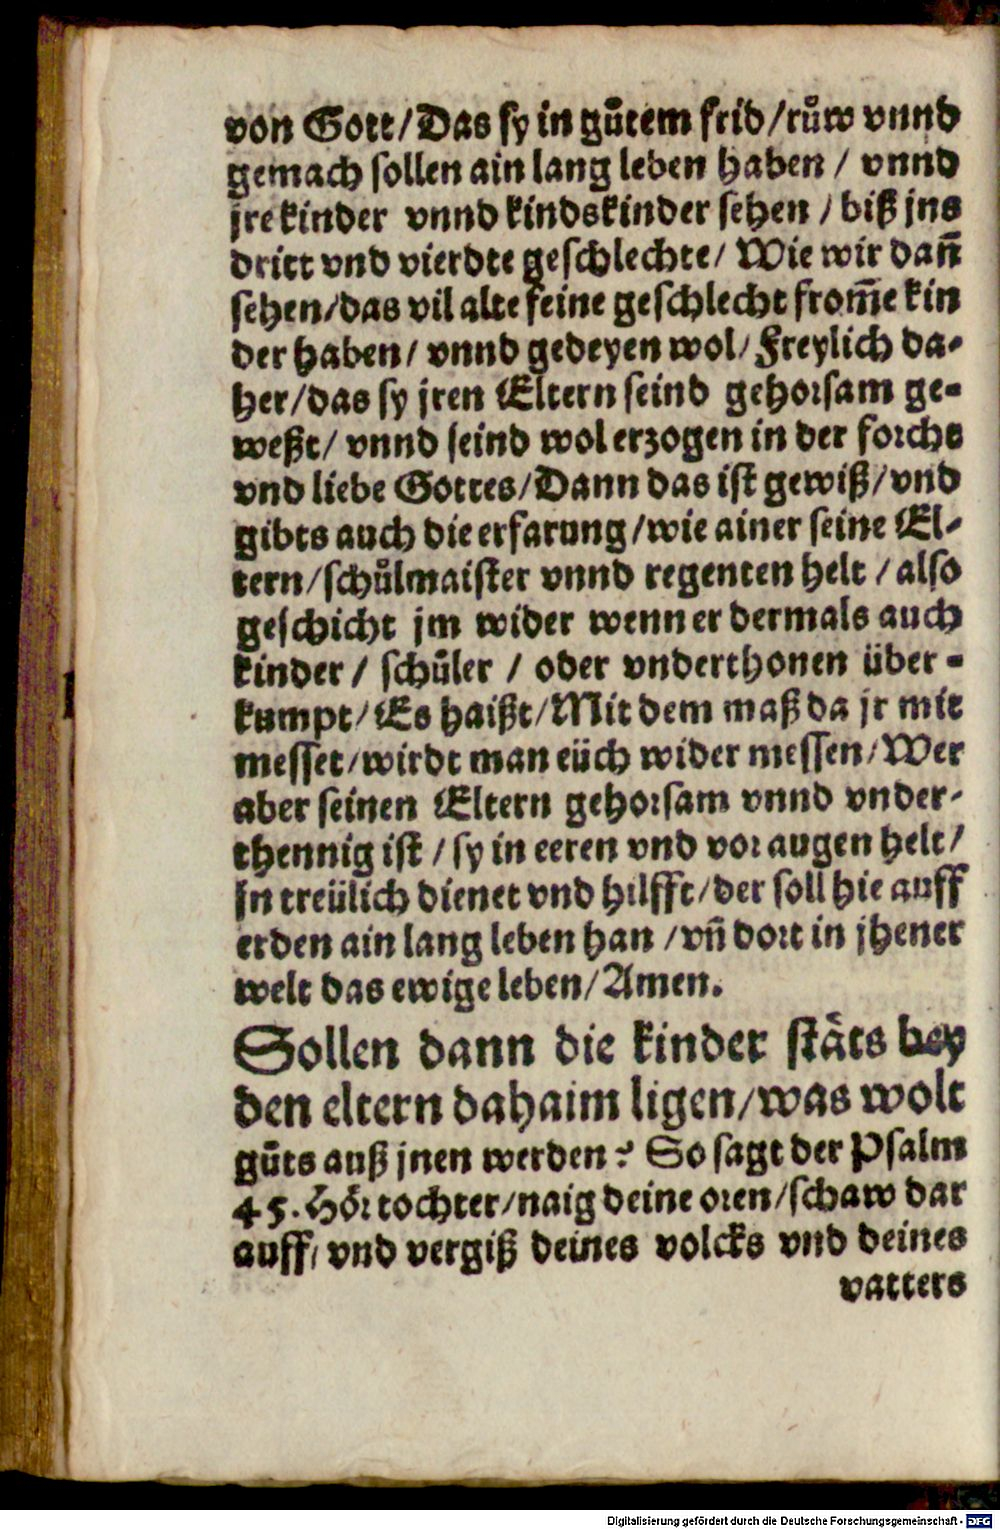 von Gott/Das sy in gůtem frid/růw vnnd
gemach sollen ain lang leben haben / vnnd
jre kinder vnnd kindskinder sehen / biß jns
dritt vnd vierdte geschlechte/ Wie wir dañ
sehen/das vil alte feine geschlecht from̃e kin
der haben/ vnnd gedeyen wol/ Freylich da-
her/das sy jren Eltern seind gehorsam ge-
weßt/ vnnd seind wol erzogen in der forcht
vnd liebe Gottes/Dann das ist gewiß/vnd
gibts auch die erfarung/wie ainer seine El-
tern/schůlmaister vnnd regenten helt / also
geschicht jm wider wenn er dermals auch
kinder / schůler / oder vnderthonen über-
kumpt/Es haißt/Mit dem maß da jr mit
messet/wirdt man eüch wider messen/Wer
aber seinen Eltern gehorsam vnnd vnder-
thennig ist / sy in eeren vnd vor augen helt/
In treülich dienet vnd hilfft/der soll hie auff
erden ain lang leben han /vñ dort in jhener
welt das ewige leben/Amen.
Sollen dann die kinder stäts bey
den eltern dahaim ligen/was wolt
gůts auß jnen werden? So sagt der Psalm
45. Hör tochter/naig deine oren/schaw dar
auff/ vnd vergiß deines volcks vnd deines
vatters
Digitalisierung gefördert durch die Deutsche Forschungsgemeinschaft - DFG